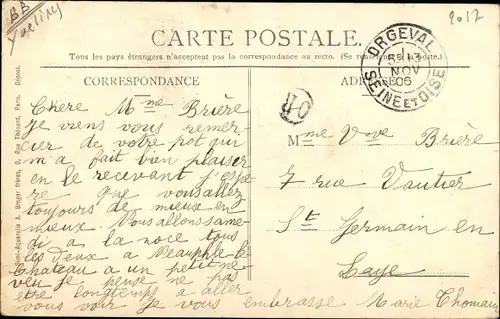 BB
Yvelines
2012
CARTE POSTALE.
Tous les pays étrangers n'acceptent pas la correspondance au recto. (Se renseigner à la poste.)
ORGEVAL
13
NOV
06
SEINE ET OISE
CORRESPONDANCE
ADRESSE
40
Semi-Aquarelle A. Breger frères, 9, Rue Thénard, Paris. Déposé.
Chère Mme Brière
Je viens vous remer-
cier de votre pot qui
m'a fait bien plaisir
en le recevant j'espè
re que vous allez
toujours de mieux en
mieux. Nous allons same
di a la noce tous
les deux a Neauphle-le
Chateau a un petit ne
veu je pense ne pas
etre longtemps a aller
vous voir je vous embrasse Marie Thomain
Mme Vve Brière
7 rue Vautier
St Germain en
Laye